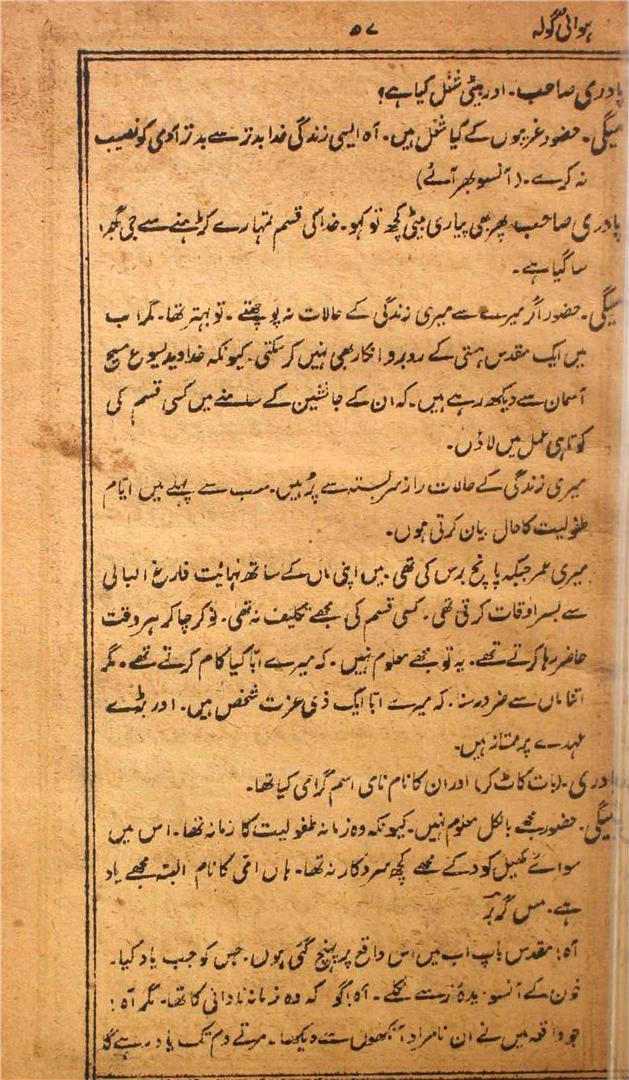 ہوائی گولہ ۵۷
پادری صاحب۔ اور بیٹی شغل کیا ہے؟
میگی۔ حضور غریبوں کے کیا شغل ہیں۔ آہ ایسی زندگی خدا بدتر سے بدتر آدمی کو نصیب
نہ کرے۔ (آنسو بھر آئے)
پادری صاحب پھر بھی پیاری بیٹی کچھ تو کہو۔ خدا کی قسم تمہارے کڑہنے سے جی گھبرا
سا گیا ہے۔
میگی۔ حضور اگر میرے سے میری زندگی کے حالات نہ پوچھتے۔ تو بہتر تھا۔ مگر اب
میں ایک مقدس ہستی کے روبرو انکار بھی نہیں کر سکتی۔ کیونکہ خداوند یسوع مسیح
آسمان سے دیکھ رہے ہیں۔ کہ ان کے جانشین کے سامنے میں کسی قسم کی
کوتاہی عمل میں لاؤں۔
میری زندگی کے حالات راز سربستہ سے پُر ہیں۔ سب سے پہلے میں ایّام
طفولیت کا حال بیان کرتی ہوں۔
میری عمر جبکہ پانچ برس کی تھی۔ میں اپنی ماں کے ساتھ نہائیت فارغ البالی
سے بسر اوقات کرتی تھی۔ کسی قسم کی مجھے تکلیف نہ تھی۔ نوکر چاکر ہر وقت
حاضر رہا کرتے تھے۔ یہ تو مجھے معلوم نہیں۔ کہ میرے ابّا کیا کام کرتے تھے۔ مگر
اتنا ماں سے ضرور سنا۔ کہ میرے ابّا ایک ذی عزت شخص ہیں۔ اور بڑے
عہدے پر ممتاز ہیں۔
پادری۔ (بات کاٹ کر) اور ان کا نام نامی اسم گرامی کیا تھا۔
میگی۔ حضور مجھے بالکل معلوم نہیں۔ کیونکہ وہ زمانہ طفولیت کا زمانہ تھا۔ اس میں
سوائے کھیل کود کے مجھے کچھ سروکار نہ تھا۔ ہاں امّی کا نام البتہ مجھے یاد
ہے۔ مس گربر
آہ! مقدس باپ اب میں اس واقع پر پہنچ گئی ہوں۔ جس کو جب یاد کیا۔
خون کے آنسو دیدۂ تر سے نکلے۔ آہ! گو کہ وہ زمانہ نادانی کا تھا۔ مگر آہ!
جو واقعہ میں نے ان نامراد آنکھوں سے دیکھا۔ مرتے دم تک یاد رہے گا